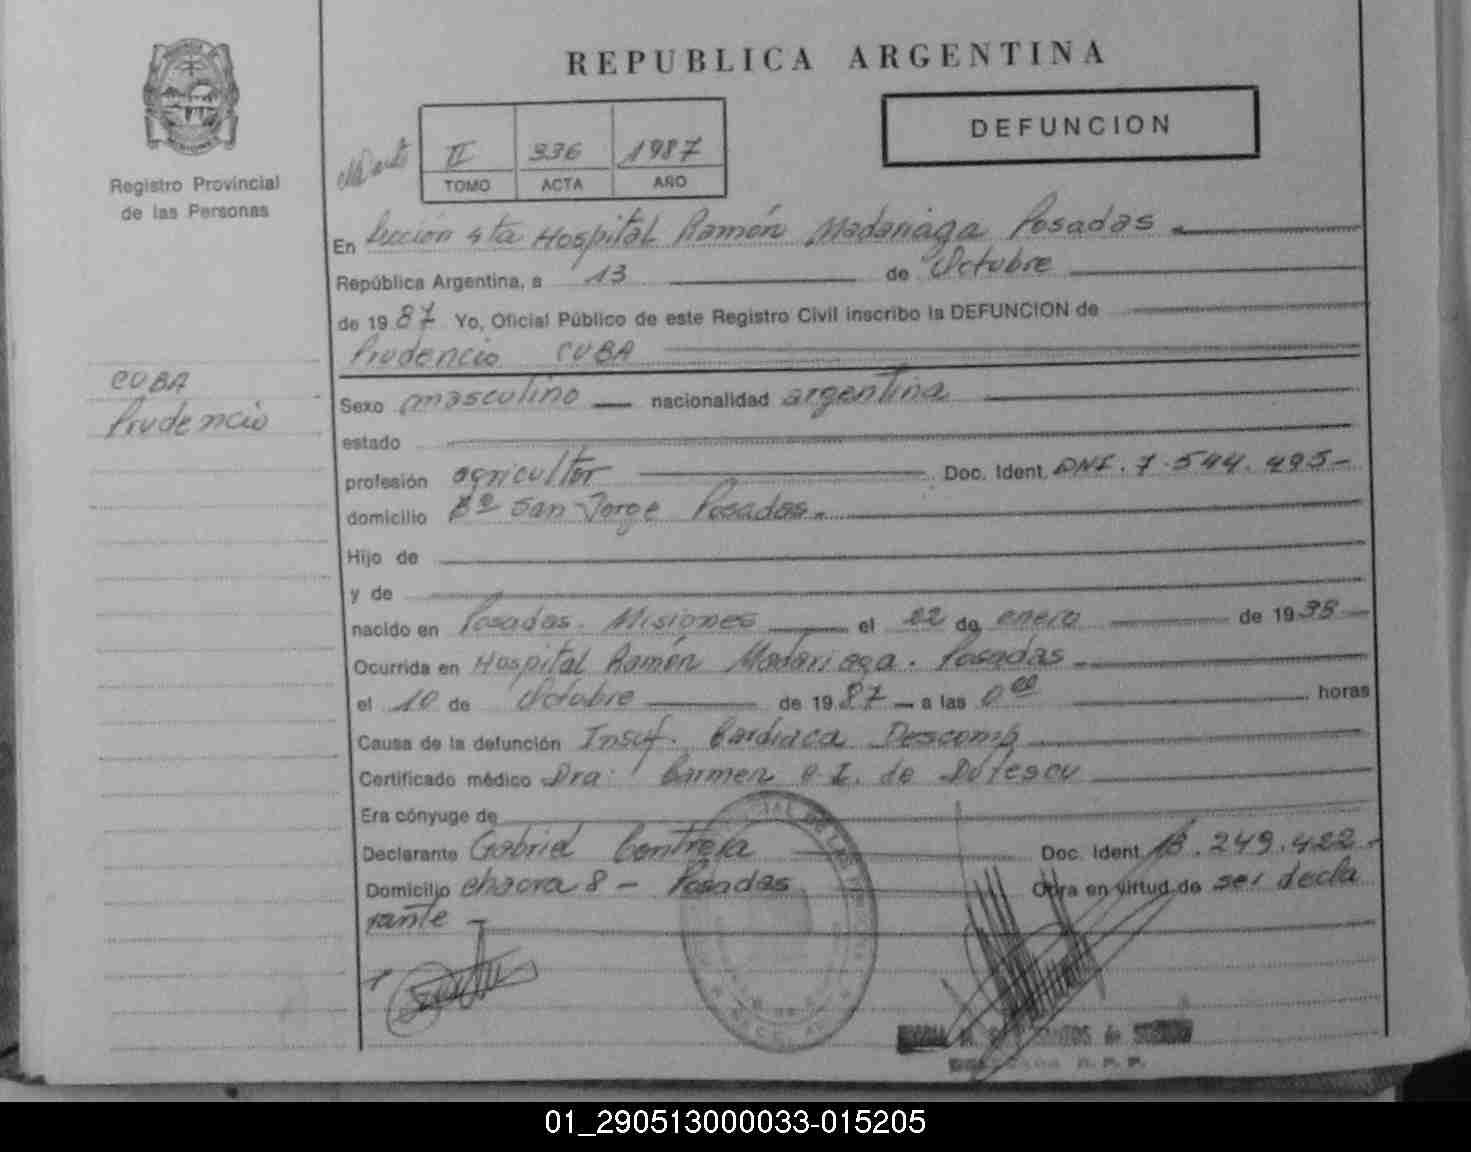 REPUBLICA ARGENTINA
DEFUNCION
II 336 1987
TOMO ACTA AÑO
Registro Provincial
de las Personas
En Sección 4ta Hospital Ramón Madariaga Posadas
República Argentina, a 13 de Octubre
de 1987 Yo, Oficial Público de este Registro Civil inscribo la DEFUNCION de
Prudencio CUBA
CUBA
Prudencio
Sexo masculino nacionalidad argentina
estado
profesión agricultor Doc. Ident. DNI. 7.544.495-
domicilio Bº San Jorge Posadas.
Hijo de
y de
nacido en Posadas. Misiones el 02 de enero de 1938
Ocurrida en Hospital Ramón Madariaga. Posadas
el 10 de Octubre de 1987 a las 0 00 horas
Causa de la defunción Insuf. Cardiaca Descomp
Certificado médico Dra: Carmen de Dutescu
Era cónyuge de
Declarante Gabriel Contrera Doc. Ident 13.249.422-
Domicilio chacra 8 - Posadas Obra en virtud de ser decla
rante
01_290513000033-015205